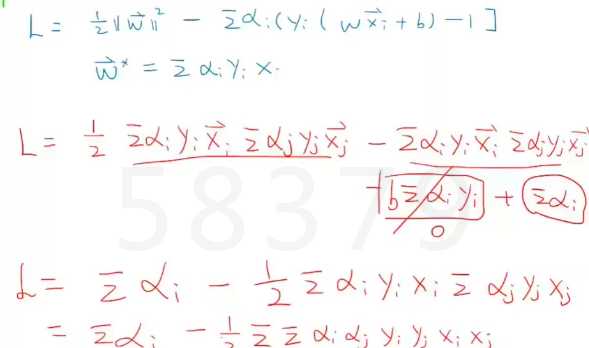 L = ½ ‖w⃗‖² − Σαᵢ(yᵢ(wx⃗ᵢ + b) − 1]
w⃗* = Σ αᵢ yᵢ x.
L = ½ Σαᵢ yᵢ x⃗ᵢ Σαⱼ yⱼ x⃗ⱼ − Σαᵢ yᵢ x⃗ᵢ Σαⱼ yⱼ x⃗ⱼ
b Σ αᵢ yᵢ + Σαᵢ
0
58379
L = Σ αᵢ − ½ Σ αᵢ yᵢ xᵢ Σ αⱼ yⱼ xⱼ
= Σαᵢ − ½ Σ Σ αᵢ αⱼ yᵢ yⱼ xᵢ xⱼ